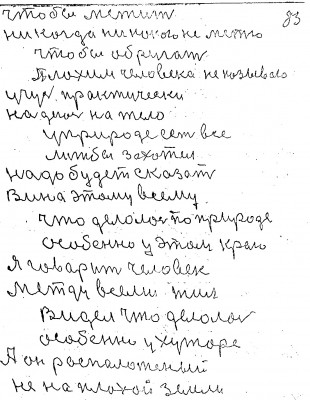 83
чтобы метит
никогда никого не метю
чтобы обругат
плохим человека не называю
учус практически
на деле на тело
у природе ест все
лишбы захотел
надо будет сказат
Вина этому всему
что делолос по природе
особенно у этом краю
Я говарит человек
Между всеми жил
Видел что делолос
особенно у хуторе
Я он росположеный
не на плохой земли